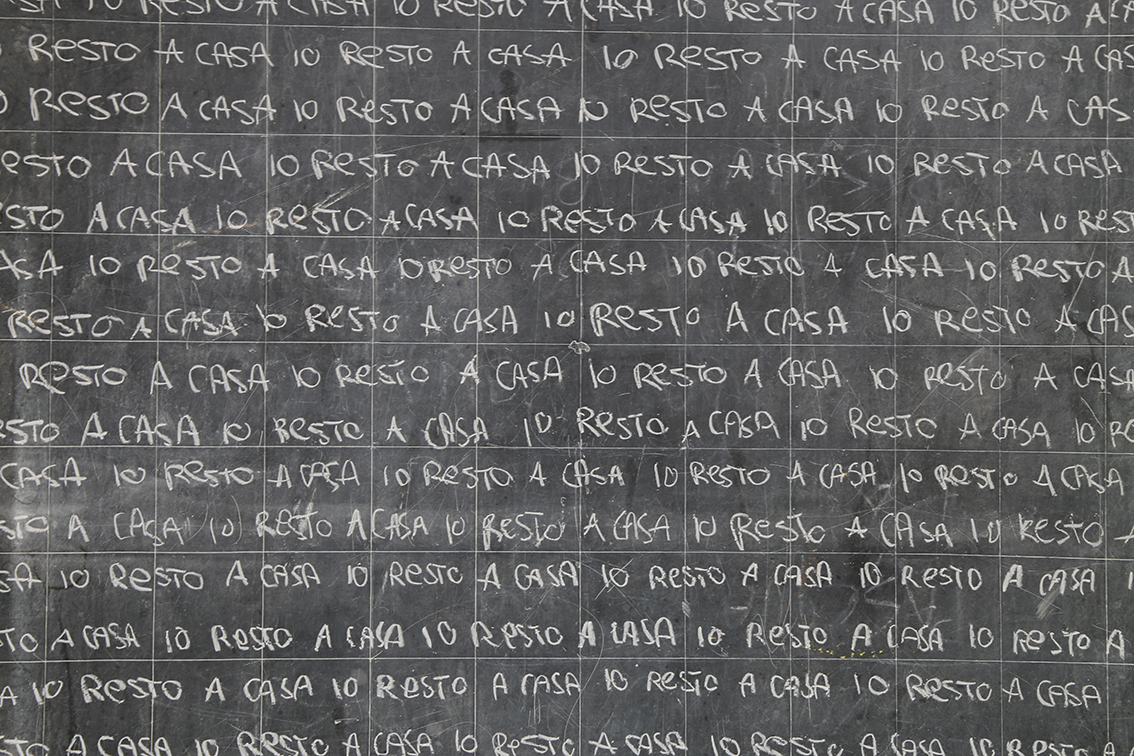 RESTO A CASA IO RESTO A CASA IO RESTO A CASA IO RESTO
RESTO A CASA IO RESTO A CASA IO RESTO A CASA IO RESTO A CAS
RESTO A CASA IO RESTO A CASA IO RESTO A CASA IO RESTO A CAS
ESTO A CASA IO RESTO A CASA IO RESTO A CASA IO RESTO A CASA
STO A CASA IO RESTO A CASA IO RESTO A CASA IO RESTO A CASA IO REST
ASA IO RESTO A CASA IO RESTO A CASA IO RESTO A CASA IO RESTO A
RESTO A CASA IO RESTO A CASA IO RESTO A CASA IO RESTO A CAS
RESTO A CASA IO RESTO A CASA IO RESTO A CASA IO RESTO A CASA
STO A CASA IO RESTO A CASA IO RESTO A CASA IO RESTO A CASA IO RE
CASA IO RESTO A CASA IO RESTO A CASA IO RESTO A CASA IO RESTO A CASA
STO A CASA IO RESTO A CASA IO RESTO A CASA IO RESTO A CASA IO RESTO A
SA IO RESTO A CASA IO RESTO A CASA IO RESTO A CASA IO RESTO A CASA
TO A CASA IO RESTO A CASA IO RESTO A CASA IO RESTO A CASA IO RESTO A
A IO RESTO A CASA IO RESTO A CASA IO RESTO A CASA IO RESTO A CASA
STO A CASA IO RESTO A CASA IO RESTO A CASA IO RESTO A CASA IO RESTO A